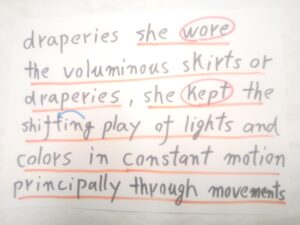 draperies she wore
the voluminous skirts or
draperies, she kept the
shifting play of lights and
colors in constant motion
principally through movements